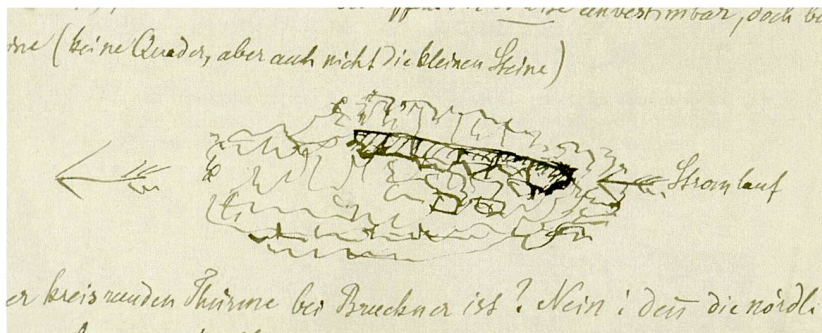 unbestimbar, doch
(keine Quader, aber auch nicht die kleinen Steine)
Stromlauf
kreisrunden Thürme bei Bruckner ist? Nein: deñ die nördli